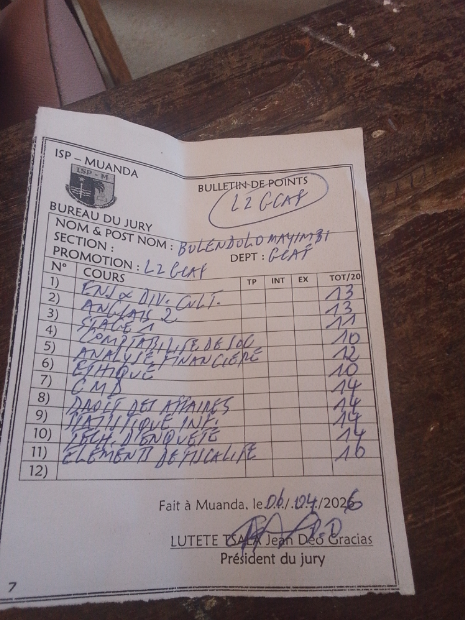 ISP – MUANDA
ISP - M
BULLETIN DE POINTS
L2 GCAF
BUREAU DU JURY
NOM & POST NOM : BULENDOLO MAYIMBI
SECTION :
DEPT : GCAF
PROMOTION : L2 GCAF
N° COURS TP INT EX TOT/20
1) ENJ & DIV. CULT. 13
2) ANGLAIS 2 13
3) STAGE 1 11
4) COMPTABILITE DE SOC 10
5) ANALYSE FINANCIERE 12
6) ETHIQUE 10
7) CMD 14
8) DROIT DES AFFAIRES 14
9) STATISTIQUE INF. 14
10) TECH. D'ENQUETE 14
11) ELEMENTS DE FISCALITE 16
12)
Fait à Muanda, le 06/04/2026
LUTETE TSALA Jean Déo Gracias
Président du jury
7